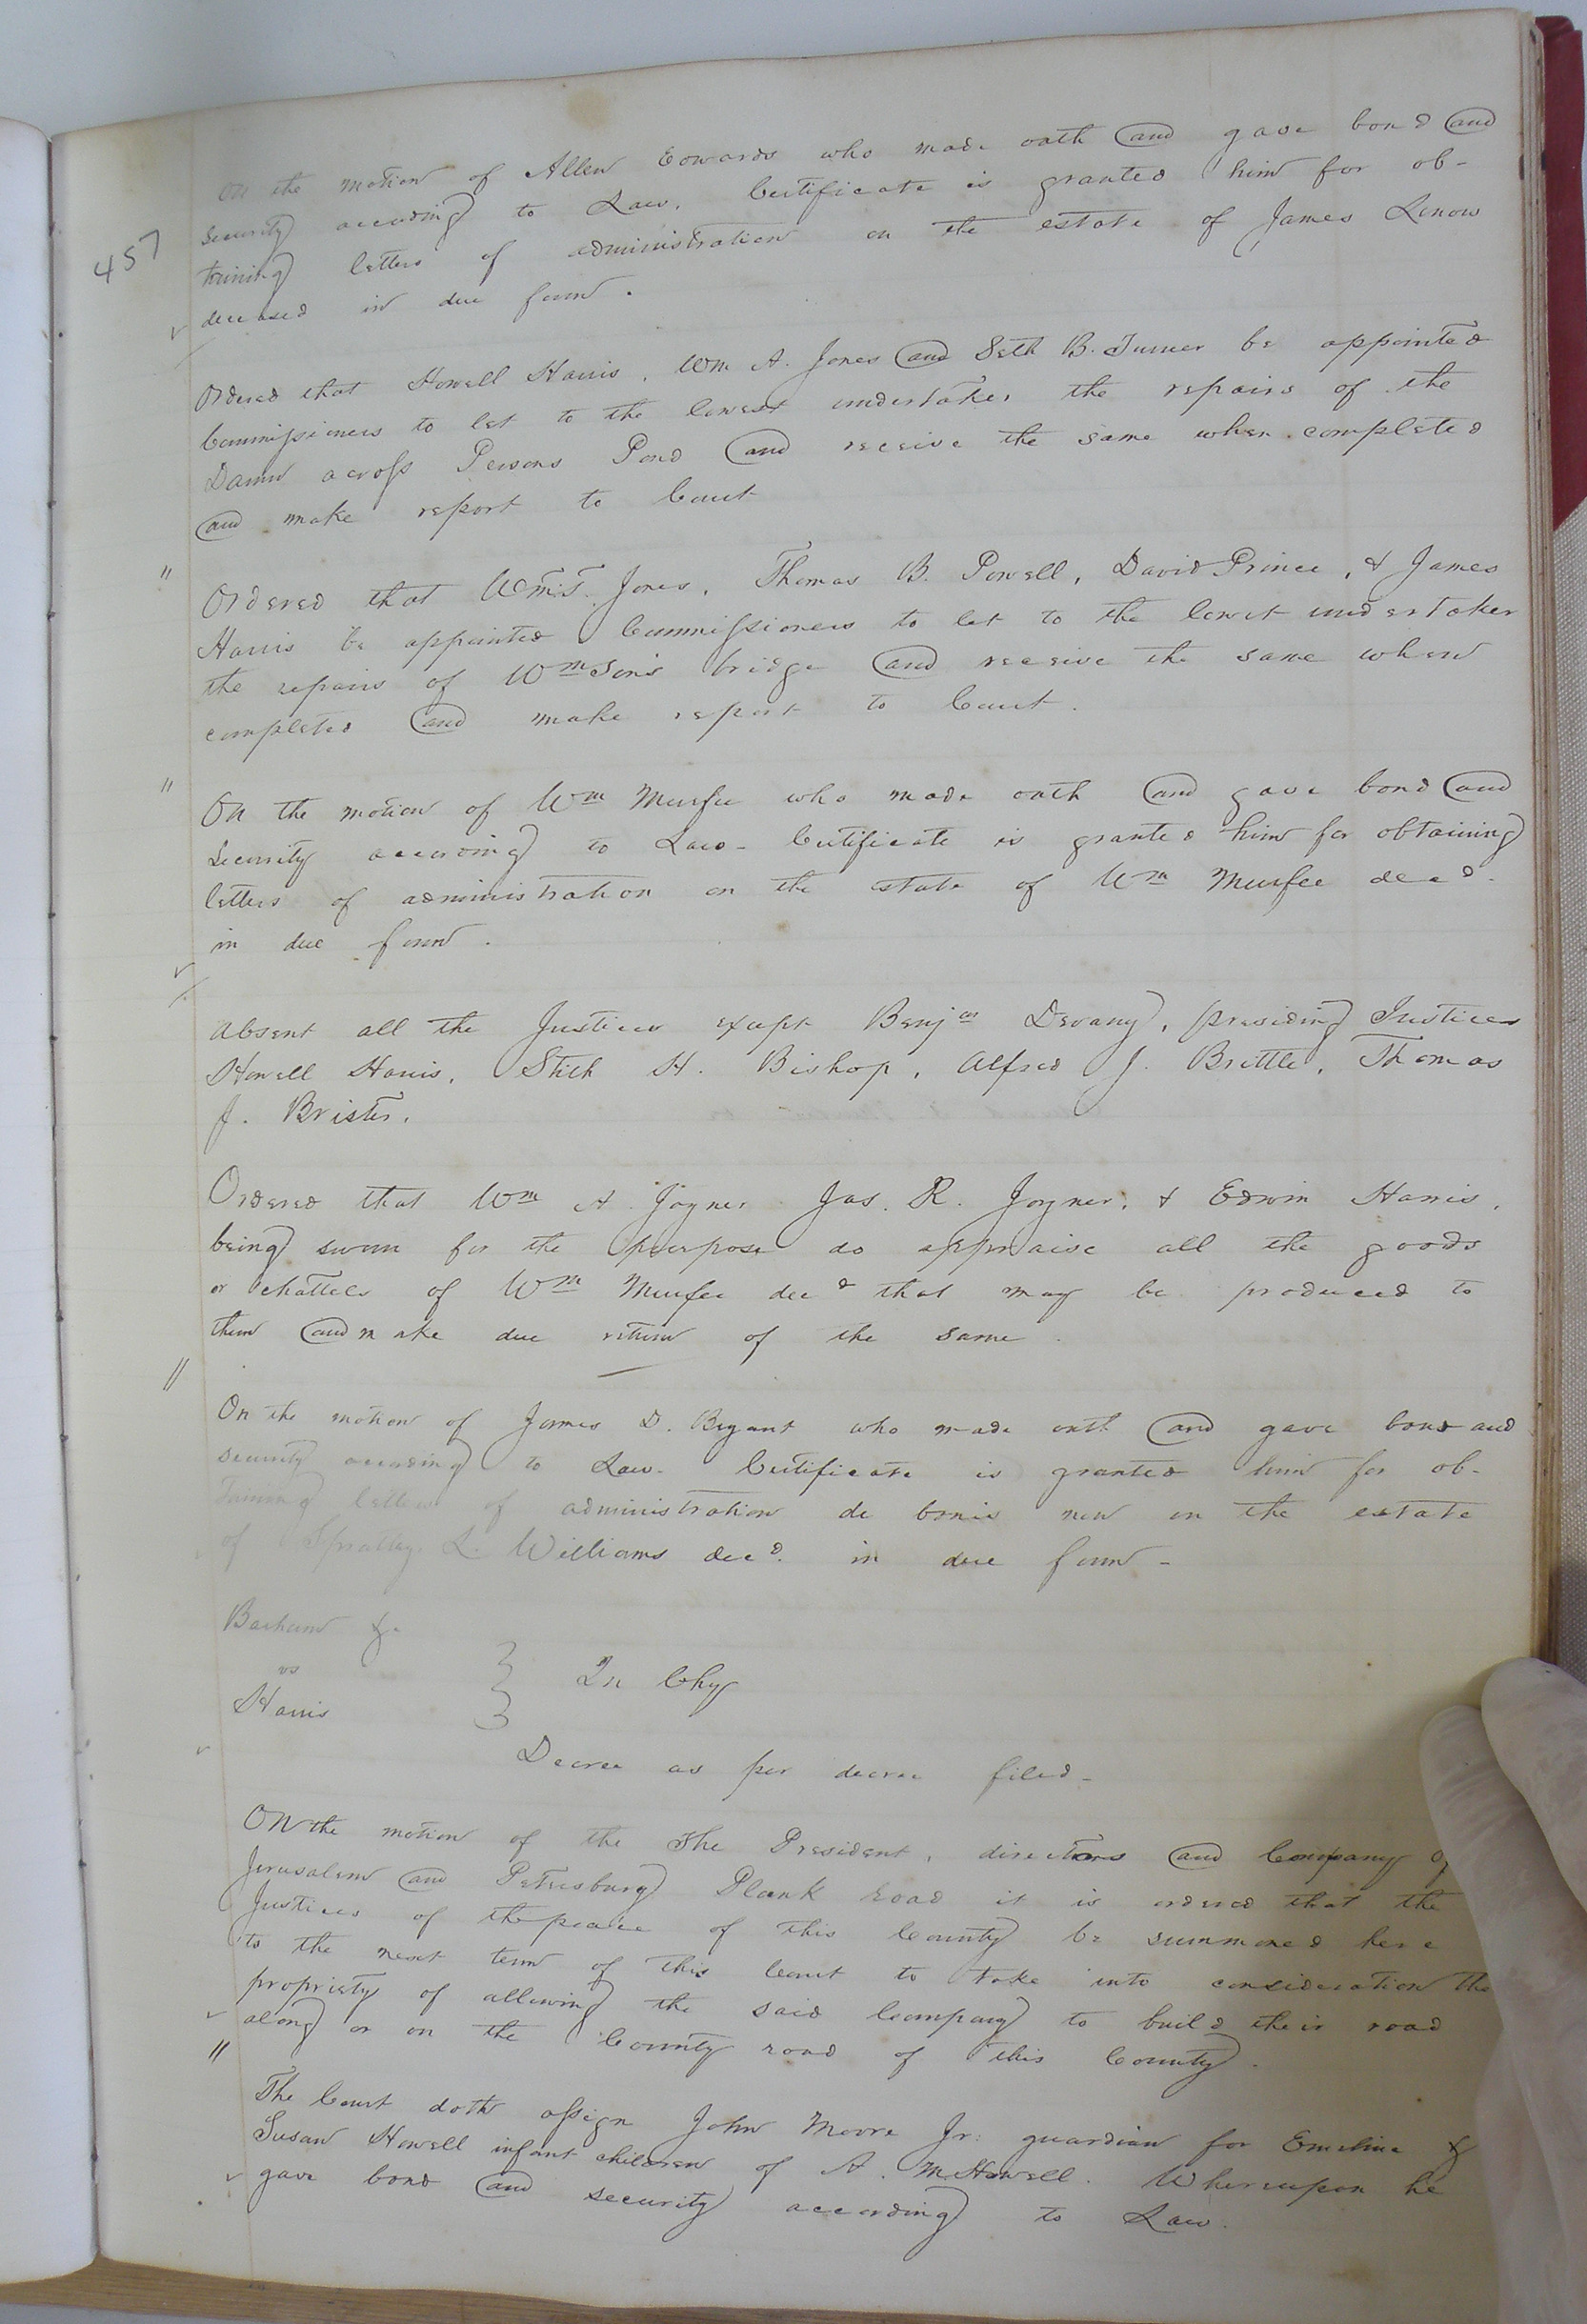 457
On the motion of Allen Edwards who made oath and gave bond and
security according to Law. Certificate is granted him for ob-
taining letters of administration on the estate of James Lenow
deceased in due form.
Ordered that Howell Harris, Wm A. Jones and Seth B. Turner be appointed
Commissioners to let to the lowest undertaker the repairs of the
Damn across Persons Pond and receive the same when completed
and make report to Court
" Ordered that Wm. T. Jones, Thomas B. Powell, David Prince, & James
Harris be appointed Commissioners to let to the lowest undertaker
the repairs of Wmson's bridge and receive the same when
completed and make report to Court.
" On the motion of Wm Murfee who made oath and gave bond and
security according to Law - Certificate is granted him for obtaining
letters of administration on the estate of Wm Murfee decd.
in due form.
Absent all the Justices except Benjan Devany, presiding Justice
Howell Harris, Stith H. Bishop, Alfred J. Brittle, Thomas
J. Brister.
Ordered that Wm A Joyner Jas. R. Joyner, & Edwin Harris,
being sworn for the purpose do appraise all the goods
or chattels of Wm Murfee decd that may be produced to
them and make due return of the same.
" On the motion of James D. Bryant who made oath and gave bond and
security according to Law. Certificate is granted him for ob-
taining letters of administration de bonis non on the estate
of Spratley L. Williams decd. in due form -
Barham &c
vs } In Chy
Harris }
Decree as per decree filed -
On the motion of the The President, directors and Company of
Jerusalem and Petersburg Plank road it is ordered that the
Justices of the peace of this County be summoned here
to the next term of this Court to take into consideration the
propriety of allowing the said Company to build their road
along or on the County road of this County.
" The Court doth assign John Moore Jr. guardian for Emeline &
Susan Howell infant children of A. M Howell. Whereupon he
gave bond and security according to Law.